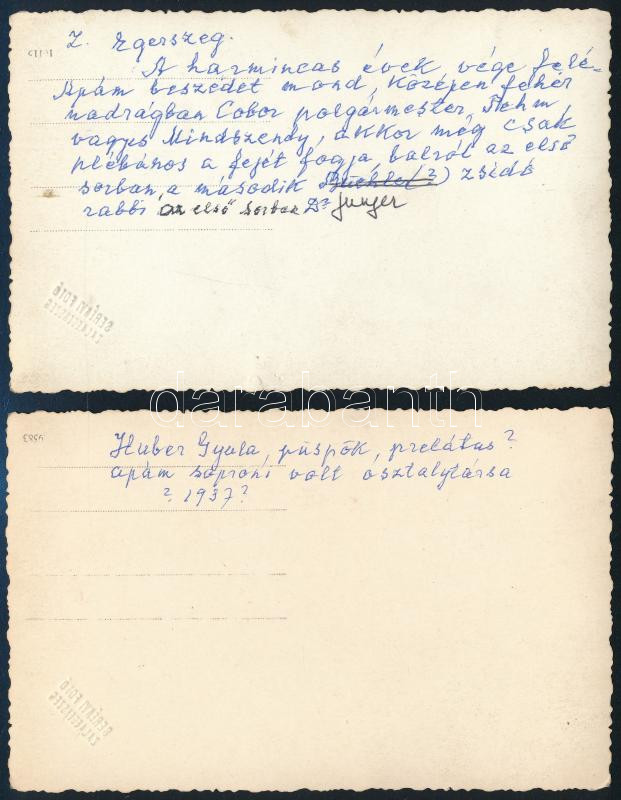 Z. Egerszeg.
A harmincas évek vége felé-
Apám beszédet mond, Középen fehér
nadrágban Cobor polgármester, Pehm
vagyis Mindszenty, akkor még csak
plébános a fejét fogja, balról az első
sorban, a második Büchler(?) zsidó
rabbi az első sorban Dr Junger
BERÉNYI FOTÓ
ZALAEGERSZEG
darabanth
9583
Huber Gyula, püspök, prelátus?
apám soproni volt osztalytársa
? 1937?
BERÉNYI FOTÓ
ZALAEGERSZEG